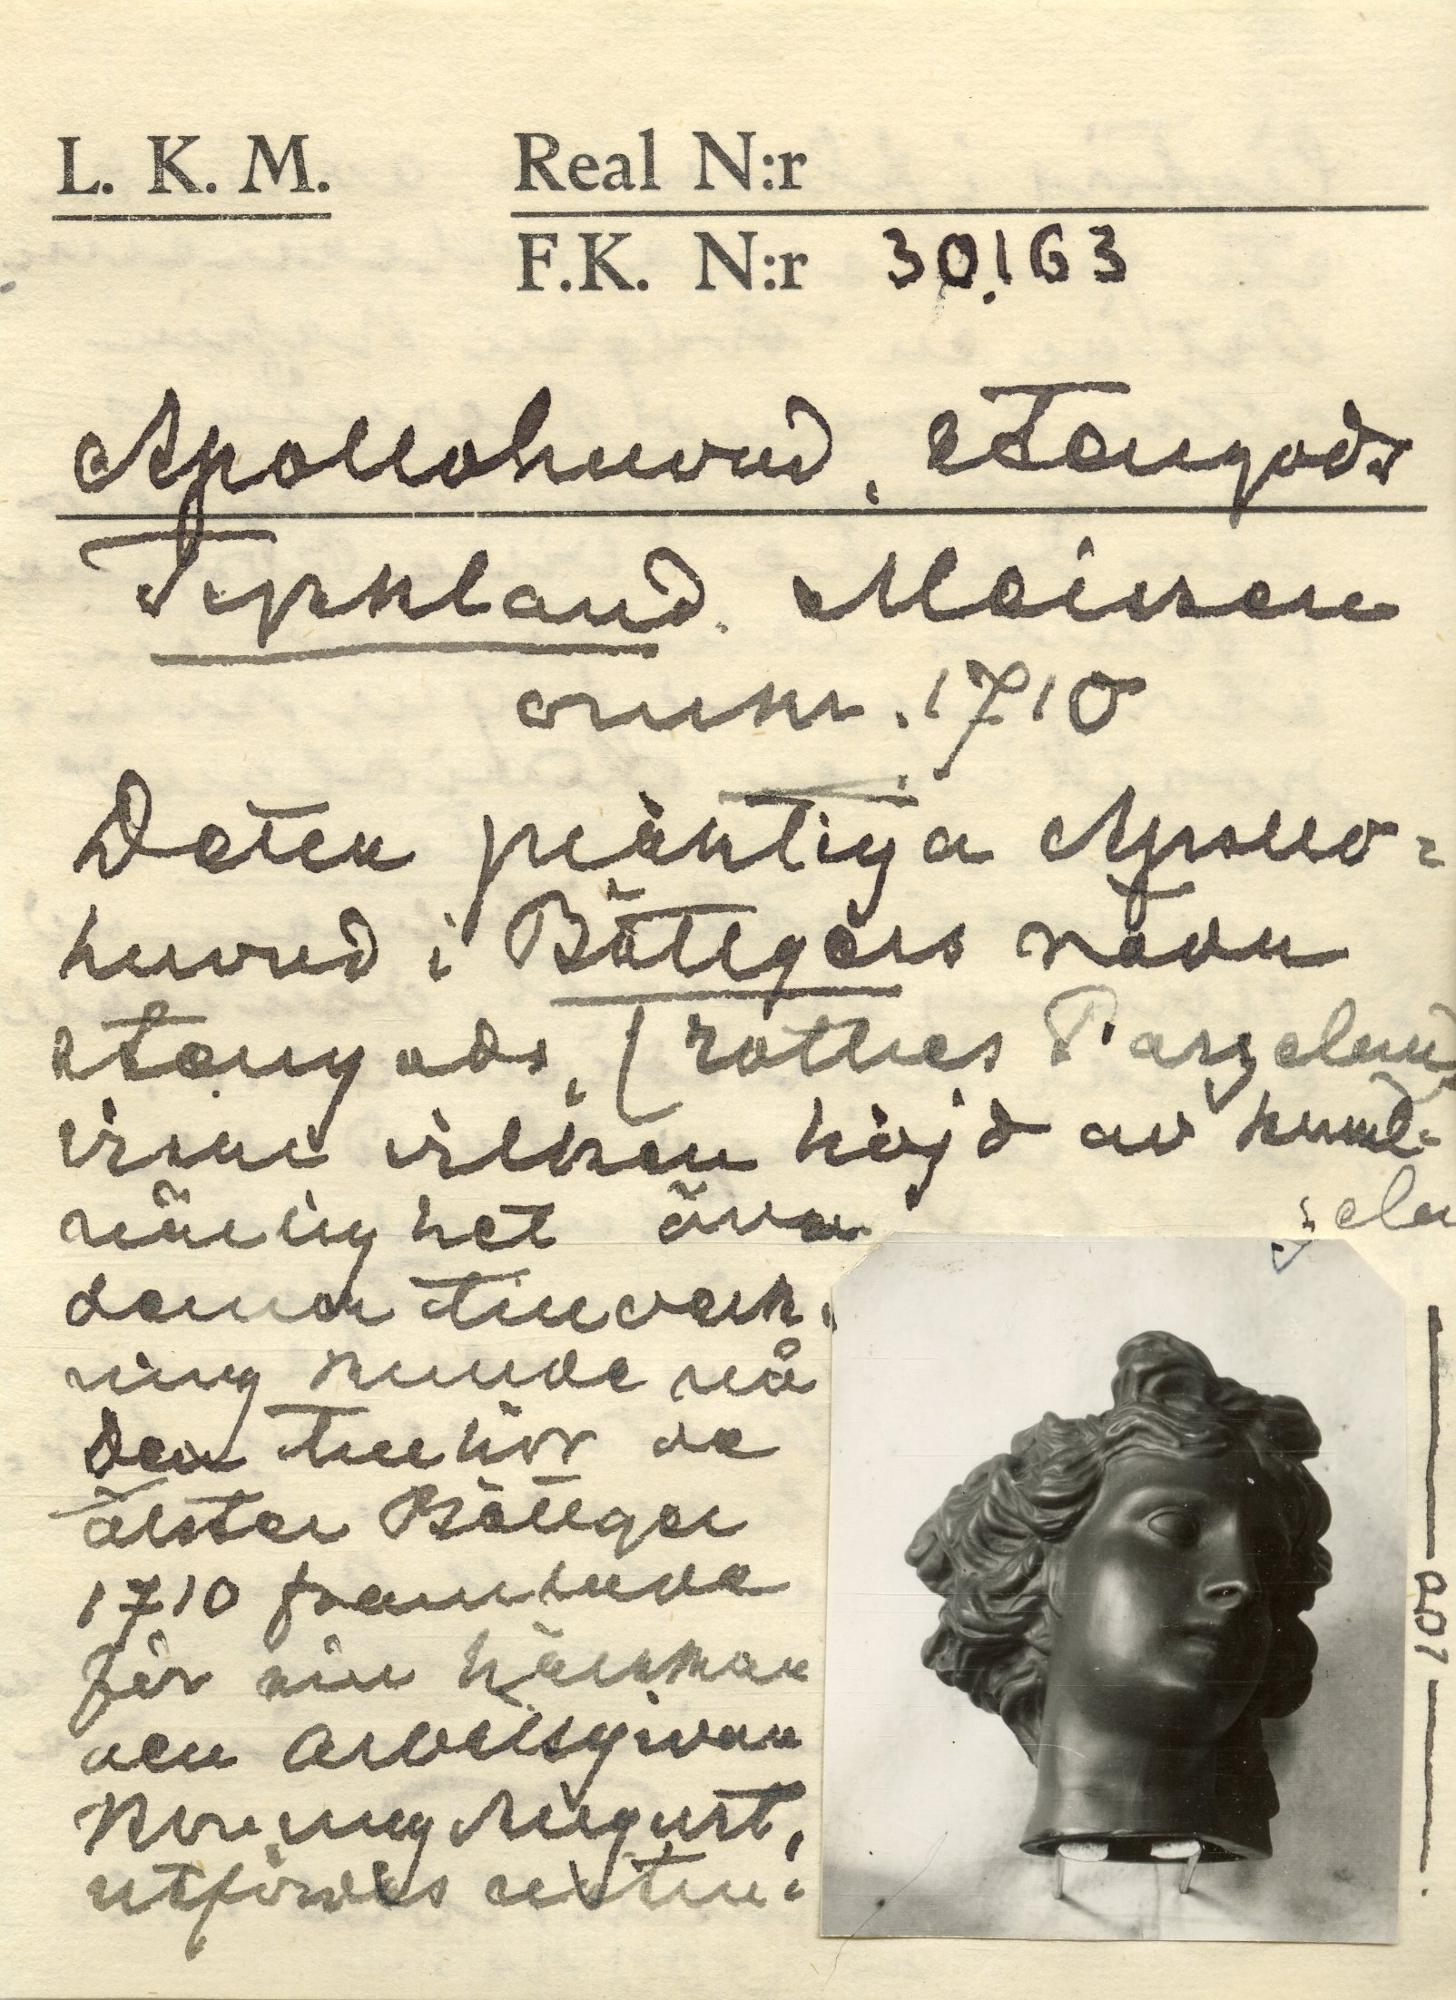 L. K. M.
Real N:r
F.K. N:r 30,163
Apollohuvud, stengods
Tyskland. Meissen
omkr. 1710
Detta präktiga Apollo=
huvud i Böttgers röda
stengods, (rothes Porzelan)
visar vilken höjd av konst-
närlighet även
denna tillverk-
ning kunde nå
Den tillhör de
alster Böttger
1710 framlade
för sin härskare
och arbetsgivare
Konung August,
utfördes
zelan
201